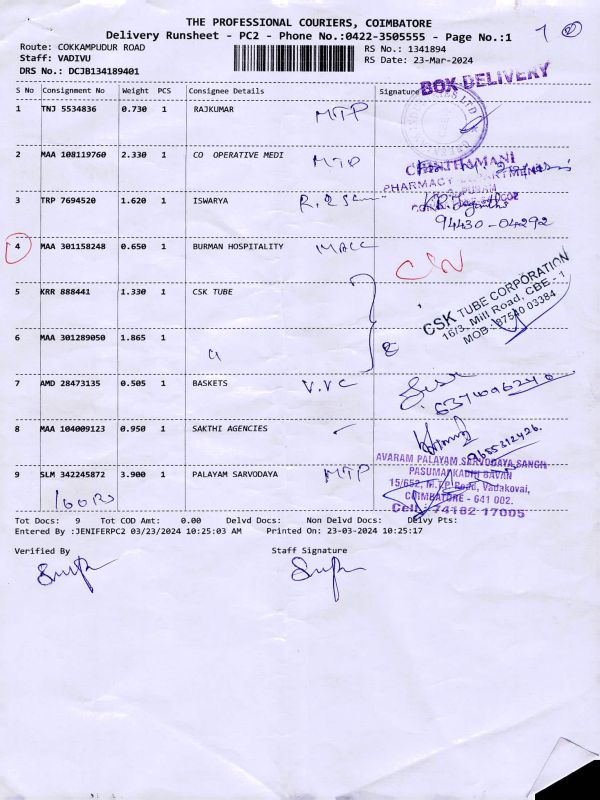 THE PROFESSIONAL COURIERS, COIMBATORE
Delivery Runsheet - PC2 - Phone No.:0422-3505555 - Page No.:1
Route: COKKAMPUDUR ROAD RS No.: 1341894
Staff: VADIVU RS Date: 23-Mar-2024
DRS No.: DCJB134189401
BOX DELIVERY
S No Consignment No Weight PCS Consignee Details Signature
1 TNJ 5534836 0.730 1 RAJKUMAR MTP
2 MAA 108119760 2.330 1 CO OPERATIVE MEDI MTP
CHINTHAMANI
PHARMACY DEPARTMENT
3 TRP 7694520 1.620 1 ISWARYA
94430-04292
4 MAA 301158248 0.650 1 BURMAN HOSPITALITY
5 KRR 888441 1.330 1 CSK TUBE
CSK TUBE CORPORATION
16/3, Mill Road, CBE - 1
MOB : 87540 03384
6 MAA 301289050 1.865 1
7 AMD 28473135 0.505 1 BASKETS V.V.C
8 MAA 104009123 0.950 1 SAKTHI AGENCIES
9655312426
9 SLM 342245872 3.900 1 PALAYAM SARVODAYA MTP
AVARAM PALAYAM SARVODAYA SANGH
15/652, M.T.P. Road, Vadakovai,
COIMBATORE - 641 002.
Cell : 74182 17005
Tot Docs: 9 Tot COD Amt: 0.00 Delvd Docs: Non Delvd Docs: Delvy Pts:
Entered By :JENIFERPC2 03/23/2024 10:25:03 AM Printed On: 23-03-2024 10:25:17
Verified By Staff Signature